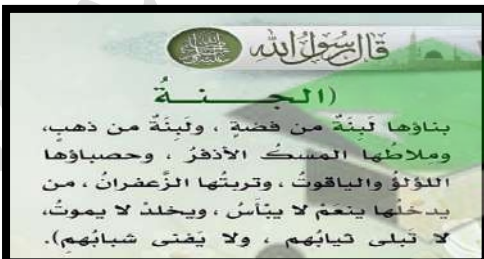 قال رسول الله ﷺ
(الجـــــنـــةُ
بناؤها لَبِنَةٌ من فضةٍ ، ولَبِنَةٌ من ذهبٍ،
وملاطُها المسكُ الأذفرُ ، وحصباؤها
اللؤلؤُ والياقوتُ ، وتربتُها الزَّعفرانُ ، من
يدخلُها ينعَمُ لا ييأَسُ ، ويخلدُ لا يموتُ،
لا تَبلى ثيابُهم ، ولا يَفنى شبابُهم).